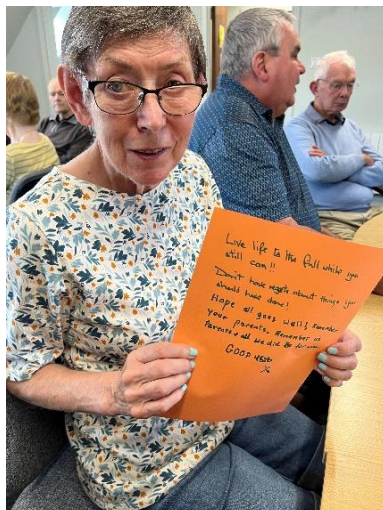 Live life to the full while you
still can!!
Don't have regrets about things you
should have done!
Hope all goes well & remember
your parents. Remember us
Parents & all we did for
GOOD
X